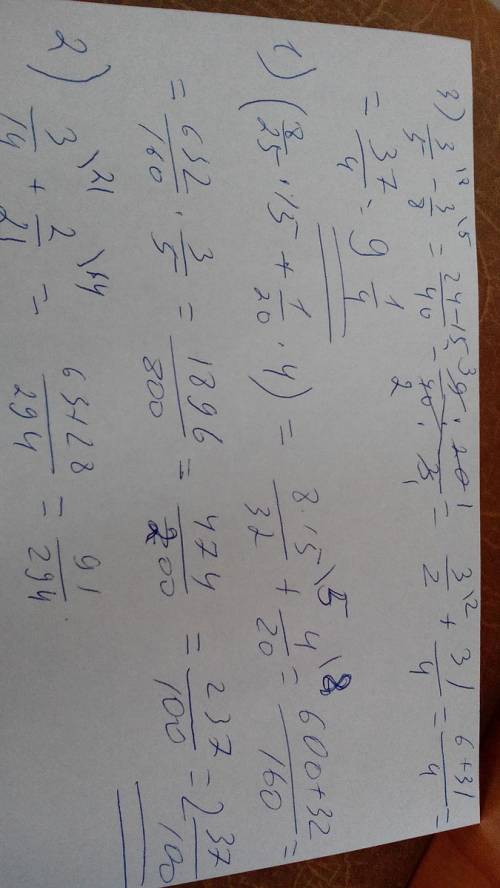 3) 3/5 \8 - 3/8 \5 = 24-15/40 - 3 9·20 1/2 40·3 1 = 3/2 \2 + 31/4 = 6+31/4 =
= 37/4 = 9 1/4
1) (8/25 · 15 + 1/20 · 4) = 8·15/32 \5 + 4/20 \8 = 600+32/160 =
= 632/160 · 3/5 = 1896/800 = 474/200 = 237/100 = 2 37/100
2) 3/14 \21 + 2/21 \14 = 63+28/294 = 91/294